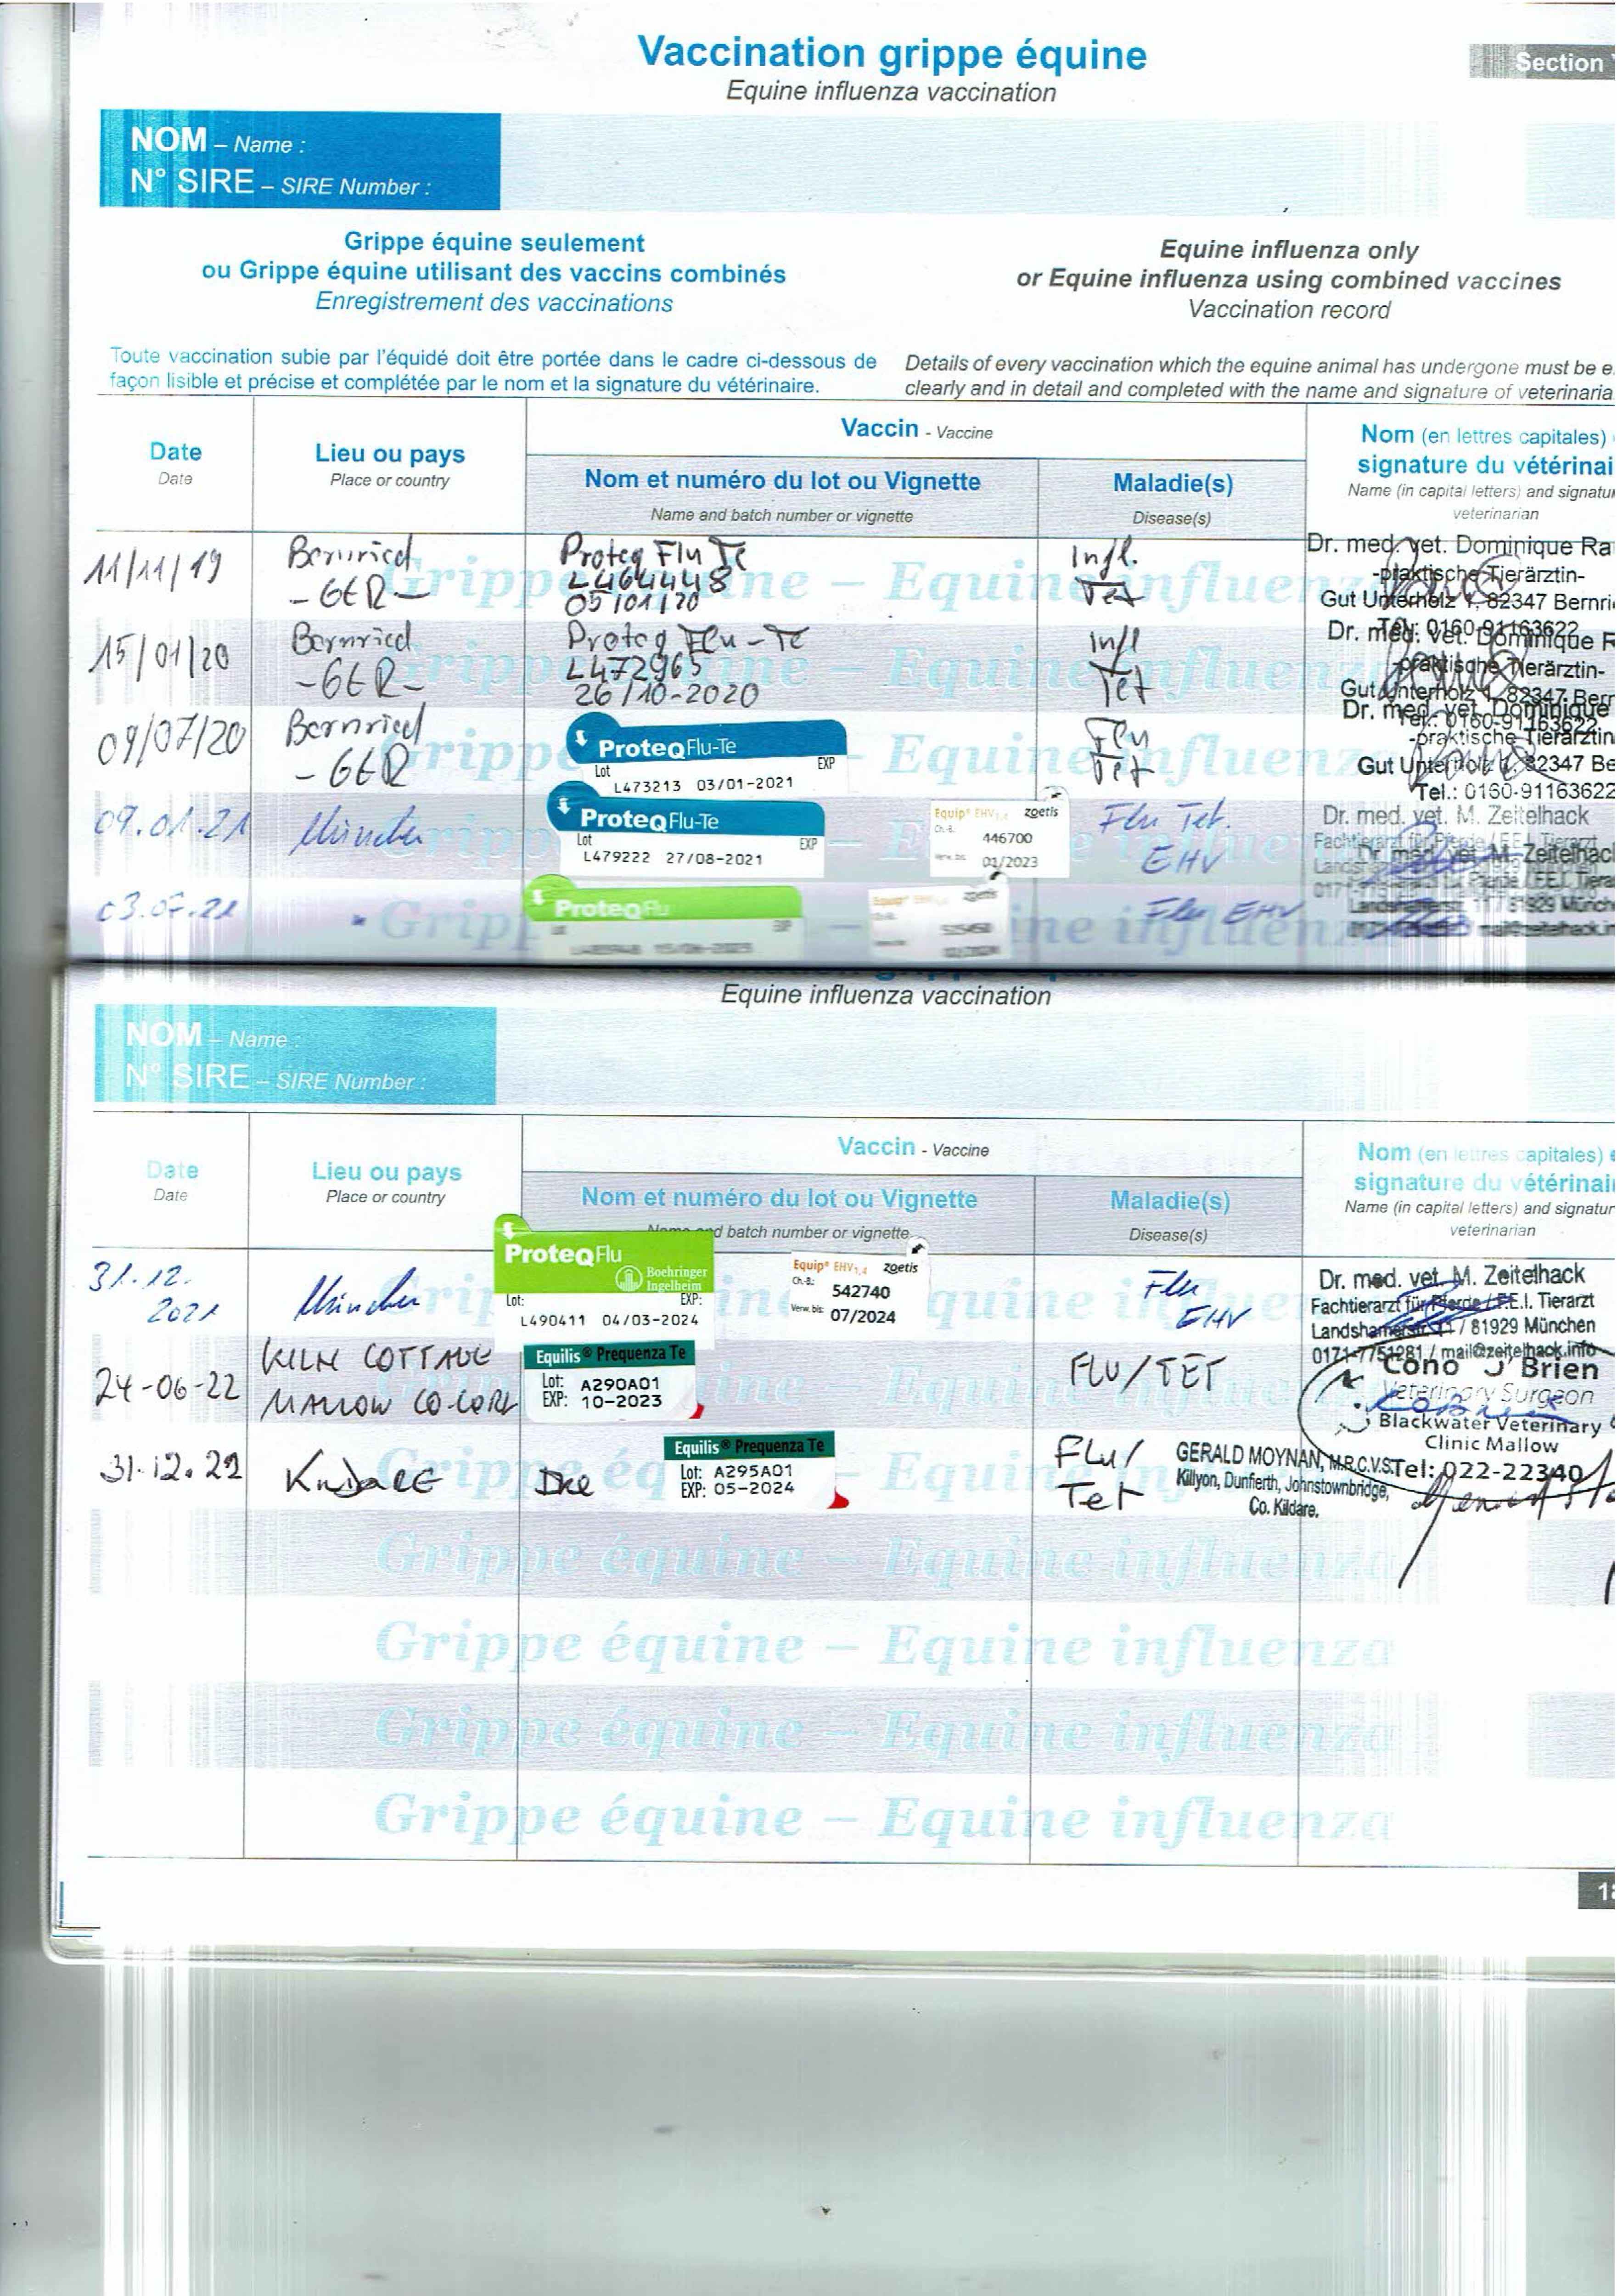 Vaccination grippe équine
Section
Equine influenza vaccination
NOM – Name :
N° SIRE – SIRE Number :
Grippe équine seulement
ou Grippe équine utilisant des vaccins combinés
Enregistrement des vaccinations
Equine influenza only
or Equine influenza using combined vaccines
Vaccination record
Toute vaccination subie par l'équidé doit être portée dans le cadre ci-dessous de
façon lisible et précise et complétée par le nom et la signature du vétérinaire.
Details of every vaccination which the equine animal has undergone must be e
clearly and in detail and completed with the name and signature of veterinaria
Date
Date
Lieu ou pays
Place or country
Vaccin - Vaccine
Nom et numéro du lot ou Vignette
Name and batch number or vignette
Maladie(s)
Disease(s)
Nom (en lettres capitales)
signature du vétérinai
Name (in capital letters) and signatur
veterinarian
11/11/19
Bernried
- GER -
Proteq Flu Te
L464448
05/01/20
Infl.
Tet
Dr. med. vet. Dominique Ra
-praktische Tierärztin-
Gut Unterholz 1, 82347 Bernri
Tel.: 0160-91163622
15/01/20
Bernried
- GER -
Proteq Flu-Te
L472965
26/10-2020
Infl
Tet
Dr. med. vet. Dominique R
-praktische Tierärztin-
Gut Unterholz 1, 82347 Bern
Tel.: 0160-91163622
09/07/20
Bernried
- GER
ProteqFlu-Te
Lot
EXP
L473213 03/01-2021
Flu
Tet
Dr. med. vet. Dominique
-praktische Tierärztin
Gut Unterholz 1, 82347 Be
Tel.: 0160-91163622
09.01.21
München
ProteqFlu-Te
Lot
EXP
L479222 27/08-2021
Equip® EHV1,4 zoetis
Ch.-B.:
446700
Verw. bis:
01/2023
Flu Tet.
EHV
Dr. med. vet. M. Zeitelhack
Fachtierarzt für Pferde / F.E.I. Tierarzt
03.07.21
ProteqFlu
EXP
zoetis
Flu EHV
Dr. med. vet. M. Zeitelhac
Landshamerstr. 11 / 81929 Münch
mail@zeitelhack.in
Grippe équine – Equine influenza
Equine influenza vaccination
NOM – Name :
N° SIRE – SIRE Number :
Date
Date
Lieu ou pays
Place or country
Vaccin - Vaccine
Nom et numéro du lot ou Vignette
Name and batch number or vignette
Maladie(s)
Disease(s)
Nom (en lettres capitales) e
signature du vétérinai
Name (in capital letters) and signatur
veterinarian
31.12.
2021
München
ProteqFlu
Boehringer
Ingelheim
Lot:
EXP:
L490411 04/03-2024
Equip® EHV1,4 zoetis
Ch.-B.:
542740
Verw. bis: 07/2024
Flu
EHV
Dr. med. vet. M. Zeitelhack
Fachtierarzt für Pferde / F.E.I. Tierarzt
Landshamerstr. 11 / 81929 München
0171-7751281 / mail@zeitelhack.info
24-06-22
KILN COTTAGE
MALLOW CO.CORK
Equilis® Prequenza Te
Lot: A290A01
EXP: 10-2023
FLU/TET
Cono O'Brien
Veterinary Surgeon
Blackwater Veterinary
Clinic Mallow
Tel: 022-22340
31.12.22
Kildare
Equilis® Prequenza Te
Lot: A295A01
EXP: 05-2024
Flu/
Tet
GERALD MOYNAN, M.R.C.V.S.
Killyon, Dunfierth, Johnstownbridge,
Co. Kildare.
Grippe équine – Equine influenza
Grippe équine – Equine influenza
Grippe équine – Equine influenza
Grippe équine – Equine influenza